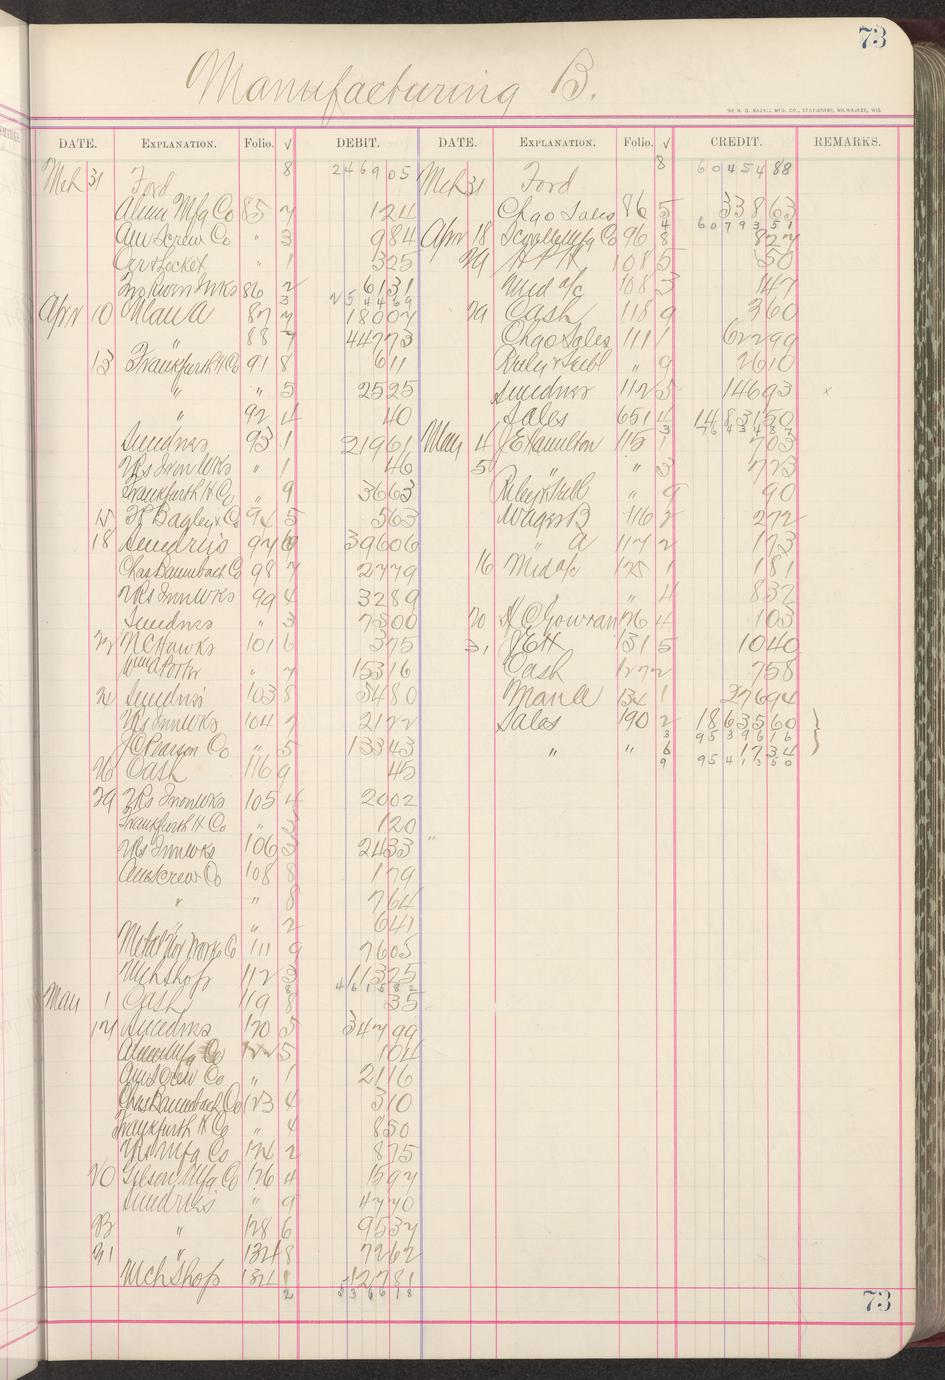 73
Manufacturing B.
DATE. EXPLANATION. Folio. √ DEBIT. DATE. EXPLANATION. Folio. √ CREDIT. REMARKS.
Mch 31 Ford 8 246905 Mch 31 Ford 8 6045488
Alum Mfg Co 85 7 124 Chgo Sales 86 5 33863
4 6079351
Am Screw Co " 3 984 Apr 18 Scovelle Mfg Co 96 8 827
" 1 325 29 108 5 50
Iron Wks 86 2 6131 Mid a/c 108 3 147
3 254469
Apr 10 Man A 87 7 18007 29 Cash 118 9 360
" 88 7 44773 Chgo Sales 111 1 62299
13 Frankfurth H Co 91 8 611 " 9 2610
" " 5 2525 Sundries 112 5 14693 x
" 92 4 40 Sales 651 4 1483150
3 7643487
Sundries 93 1 21961 May 4 J E Hamilton 115 1 703
Iron Wks " 1 46 5 " " 3 773
Frankfurth H Co " 9 3663 " 9 90
15 Bagley & Co 94 5 563 Wages B 116 2 272
18 Sundries 97 39606 " A 117 2 173
Chas Baumbach Co 98 7 2779 16 Mid a/c 125 1 181
Iron Wks 99 4 3289 " 4 832
Sundries " 3 7500 20 H C Gowran 126 4 103
22 N C Hawks 101 6 375 31 131 5 1040
Wm A Potter " 7 15316 Cash 127 2 758
24 Sundries 103 8 5480 Man A 134 1 27694
Iron Wks 104 7 2122 Sales 190 2 1863560
3 9539616
J C Pearson Co " 5 13343 " " 6 1734
9 9541350
26 Cash 116 9 45
29 Iron Wks 105 4 2002
Frankfurth H Co " 3 120
Iron Wks 106 3 2433 "
Am Screw Co 108 8 179
" " 8 764
" " 2 641
Metal Works Co 111 9 7605
Mch Shop 112 3 11325
8 461582
May 1 Cash 119 8 35
17 Sundries 120 5 34799
Alum Mfg Co 122 5 104
Am Screw Co " 1 2116
Chas Baumbach Co 123 4 310
Frankfurth H Co " 4 850
Mfg Co 124 2 875
20 Gibson Mfg Co 126 4 1597
Sundries " 9 4770
" 128 6 9537
31 " 132 8 7262
Mch Shop 134 1 12781
2 536618
73